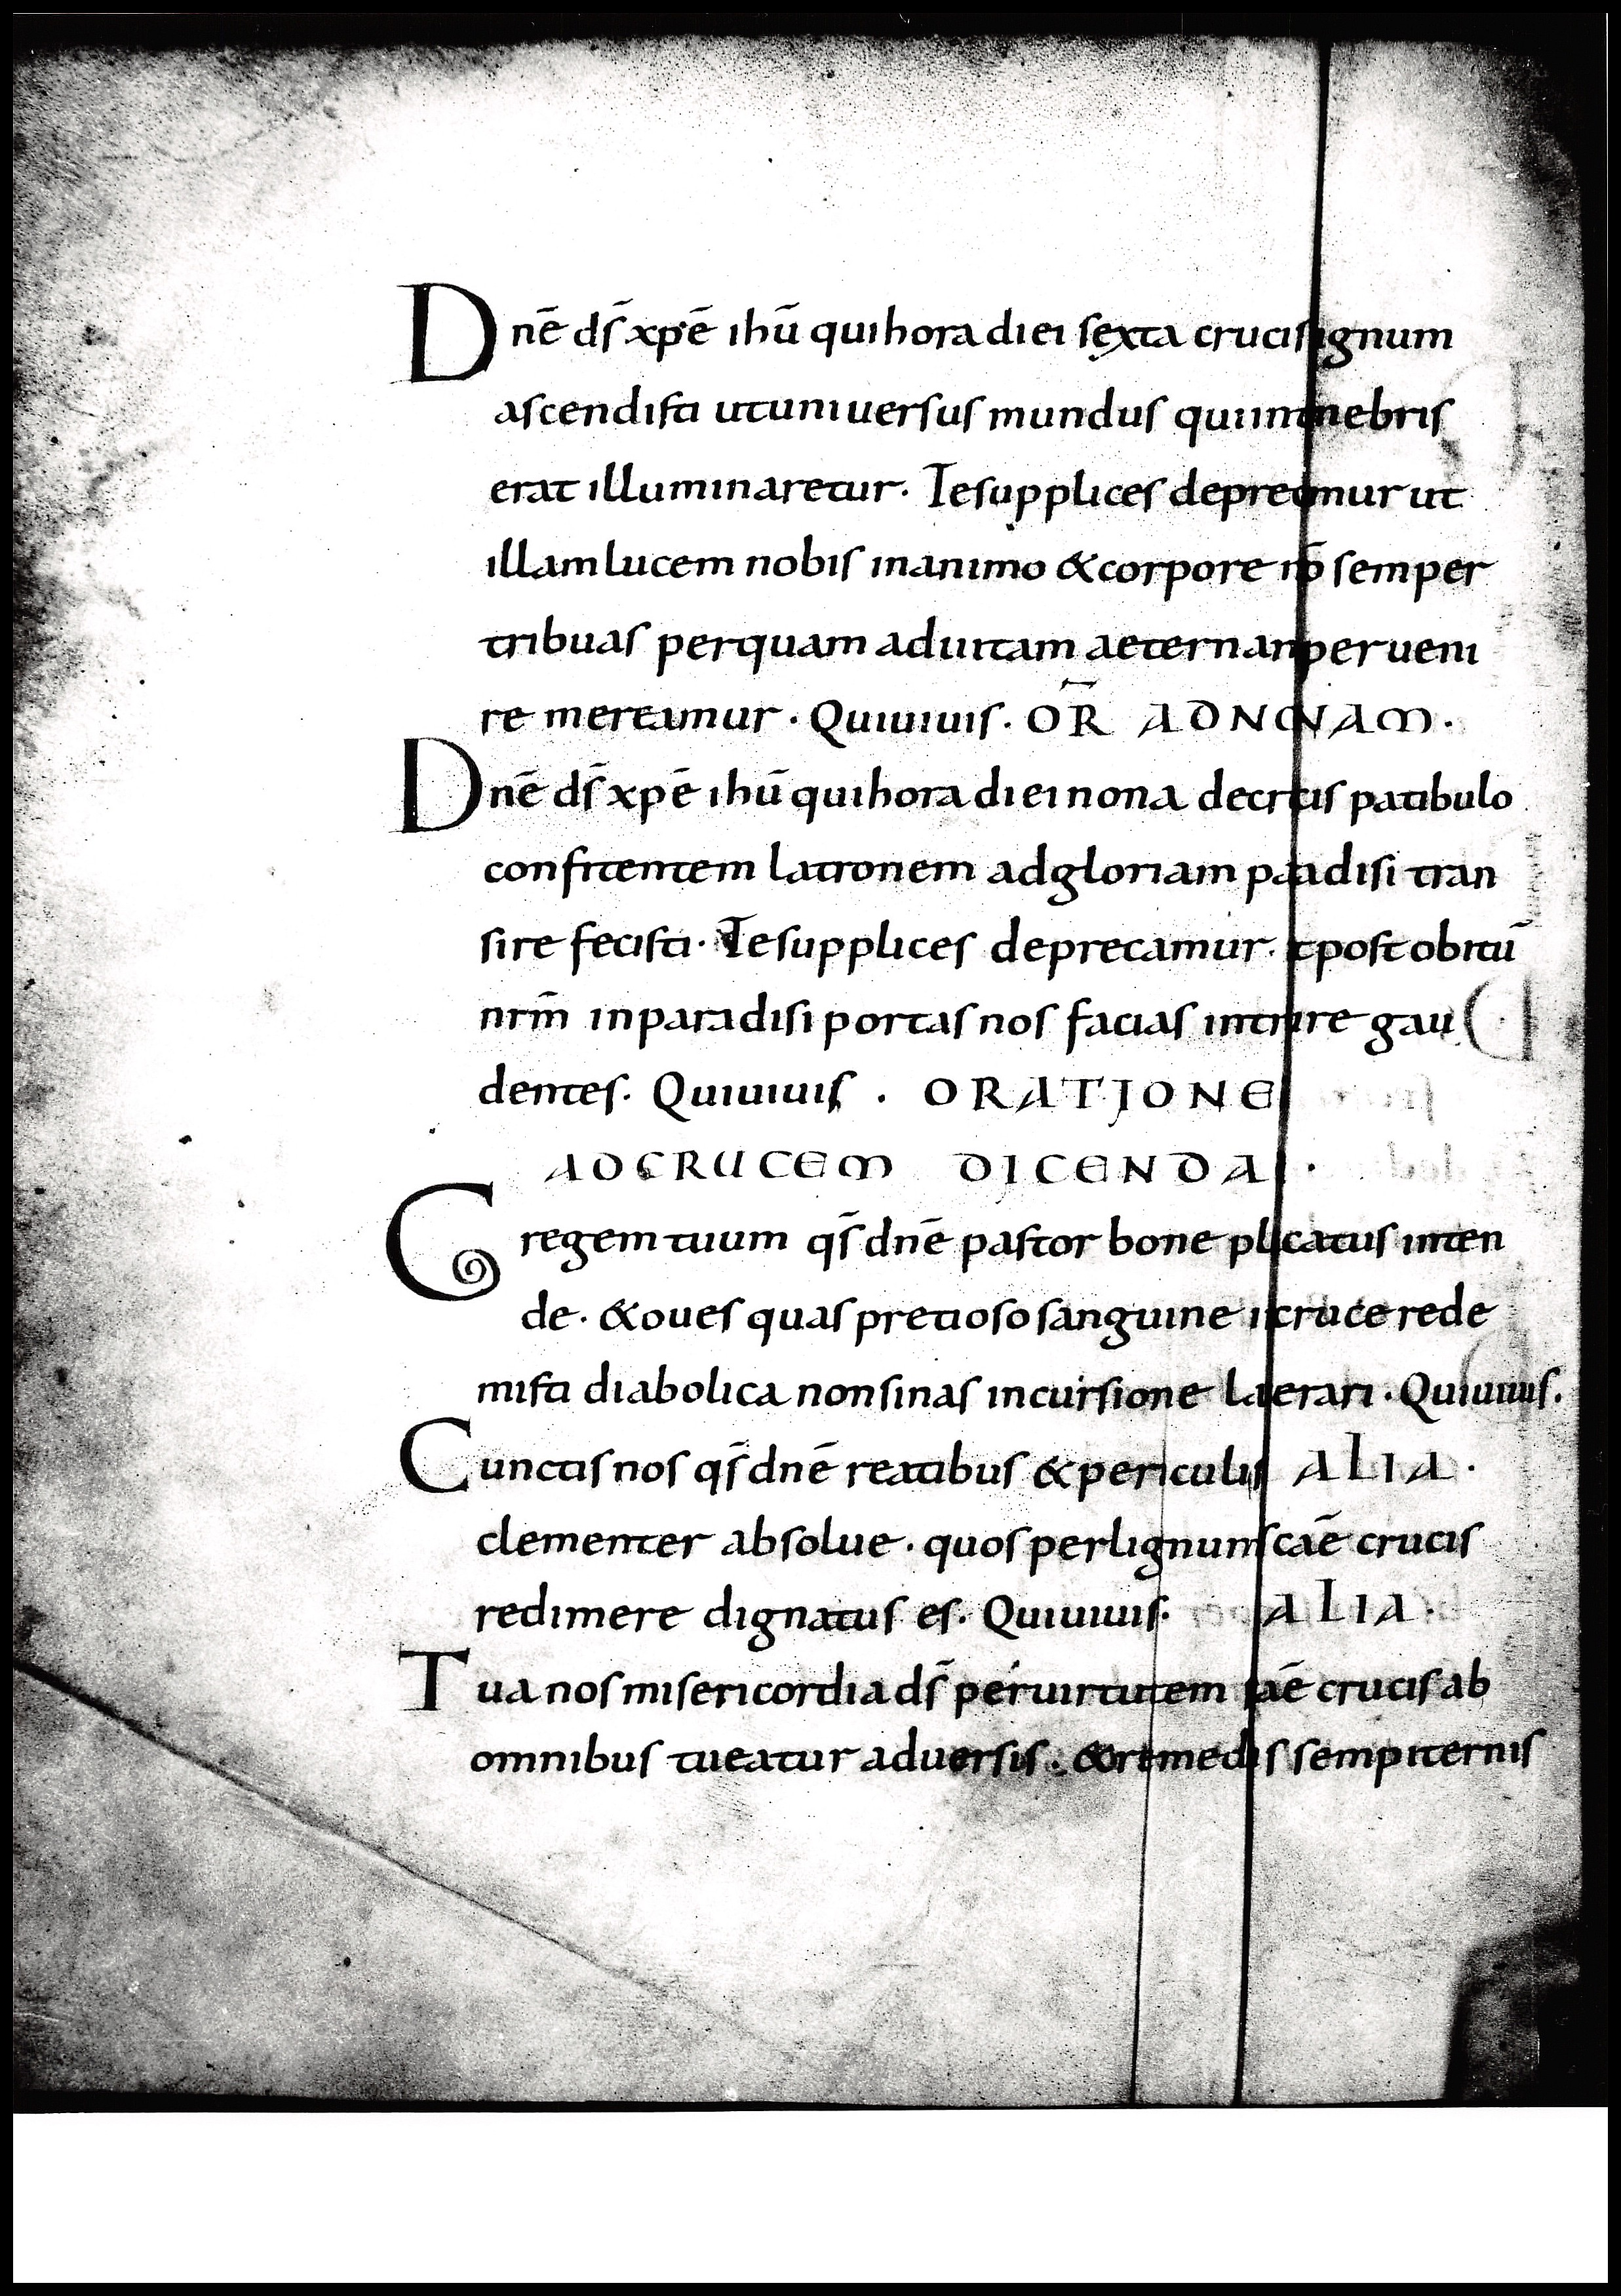 Dnē ds̄ xpē ihū qui hora diei sexta crucis lignum
ascendisti ut universus mundus qui in tenebris
erat illuminaretur. Te supplices deprecamur ut
illam lucem nobis in animo & corpore semper
tribuas per quam ad vitam aeternam perveni
re mereamur. Qui vivis. OR̄ AD NONAM.
Dnē ds̄ xpē ihū qui hora diei nona de crucis patibulo
confitentem latronem ad gloriam paradisi tran
sire fecisti. Te supplices deprecamur. ut post obitū
nrm̄ in paradisi portas nos facias intrare gau
dentes. Qui vivis. ORATIONE
AD CRUCEM DICENDA.
Gregem tuum qs̄ dnē pastor bone plicatus inten
de. & oves quas pretioso sanguine in cruce rede
misti diabolica non sinas incursione lacerari. Qui vivis.
Cunctis nos qs̄ dnē reatibus & periculis ALIA.
clementer absolve. quos per lignum scāe crucis
redimere dignatus es. Qui vivis. ALIA.
Tua nos misericordia ds̄ per virtutem scāe crucis ab
omnibus tueatur adversis. & remediis sempiternis